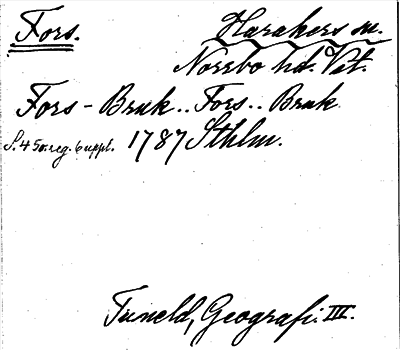 Fors. Harakers sn.
Norrbo hd. Vst.
Fors - Bruk.. Fors.. Bruk
S. 45 o. reg. 6 uppl. 1787 Sthlm.
Tuneld, Geografi. III.